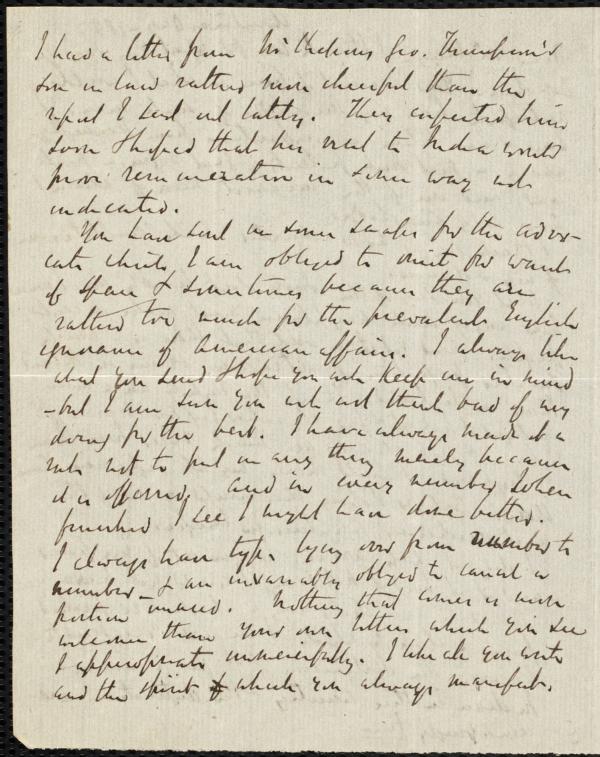 I had a letter from Mr Geo. Thompson's
son in law rather more cheerful than the
report I sent out lately. They expected him
soon & hoped that his visit to India would
prove remunerative in some way not
indicated.
You have sent me some for the Advo-
cate which I am obliged to omit for want
of space & sometimes because they are
rather too much for the prevalent English
ignorance of American affairs. I always like
what you send & hope you will keep me in mind
- but I am sure you will not think bad of my
doing for the best. I have always made it a
rule not to put in any thing merely because
it is offered, and in every number when
finished I see I might have done better.
I always have type lying over from number to
number - & am invariably obliged to cancel a
portion unused. Nothing that comes is more
welcome than your own letters which you see
I appropriate unmercifully. I like all you write
and the spirit which you always manifest.